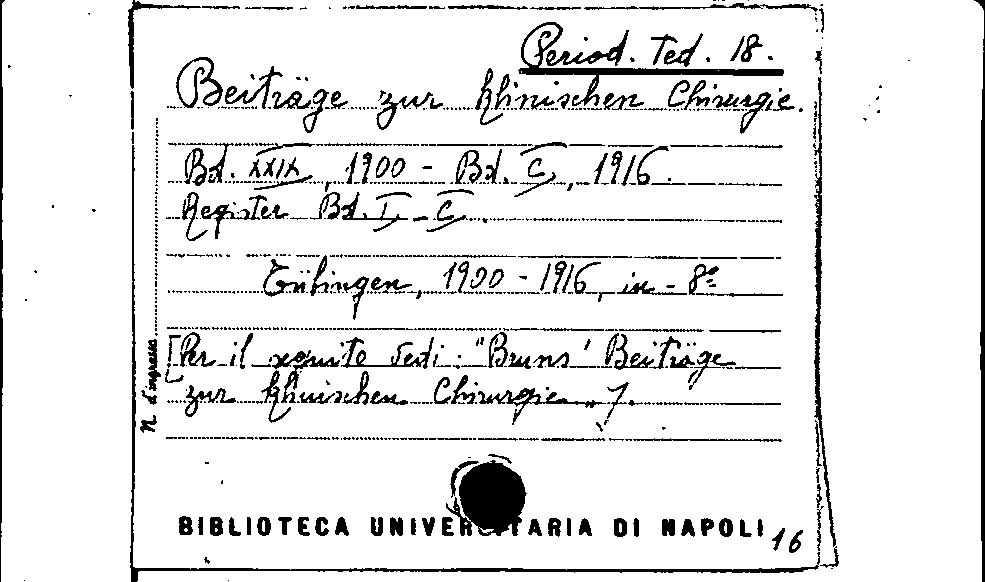 Period. Ted. 18.
Beiträge zur klinischen Chirurgie.
Bd. XXIX, 1900 - Bd. C, 1916.
Register Bd. I - C.
Tübingen, 1900 - 1916, in - 8°
[Per il seguito vedi: "Bruns' Beiträge
zur klinischen Chirurgie"].
N. d'ingresso
BIBLIOTECA UNIVERSITARIA DI NAPOLI
16